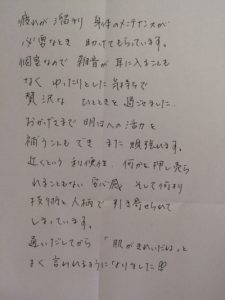 疲れが溜まり 身体のメンテナンスが
必要なとき 助けてもらっています。
個室なので 雑音が耳に入ることも
なく ゆったりとした気持ちで
贅沢なひとときを過ごせました。
おかげさまで 明日への活力を
補うこともでき また頑張れます。
近くという利便性、何かを押し売ら
れることもない安心感 そして何より
技術と人柄で引き寄せられて
しまっています。
通いだしてから 「肌がきれいだね」と
よく言われるようになりました